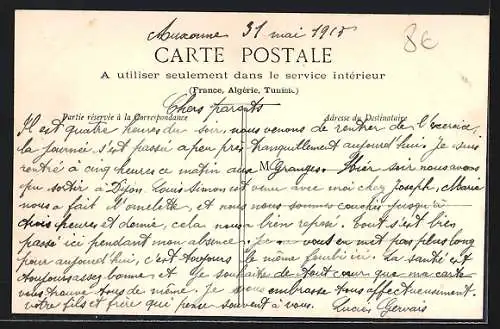 Auxonne 31 mai 1915
8€
CARTE POSTALE
A utiliser seulement dans le service intérieur
(France, Algérie, Tunisie.)
Chers parents
Partie réservée à la Correspondance
Adresse du Destinataire
Il est quatre heures du soir, nous venons de rentrer de l'exercice,
la journée s'est passé a peu près tranquillement aujourd'hui. Je suis
rentré a cinq heures ce matin aux M Granges. Hier soir nous avons
pu sortir à Dijon Louis Simon est venu avec moi chez Joseph, Marie
nous a fait l'omelette, et nous nous sommes couchés jusqu'à
trois heures et demie, cela nous a bien reposé. Tout s'est bien
passé ici pendant mon absence. Je vous en met pas plus long
pour aujourd'hui, c'est toujours le même fourbi ici. La santé est
toujours assez bonne et je souhaite de tout cœur que ma carte
vous trouve tous de même. Je vous embrasse tous affectueusement.
votre fils et frère qui pense souvent à vous.
Lucien Gervais